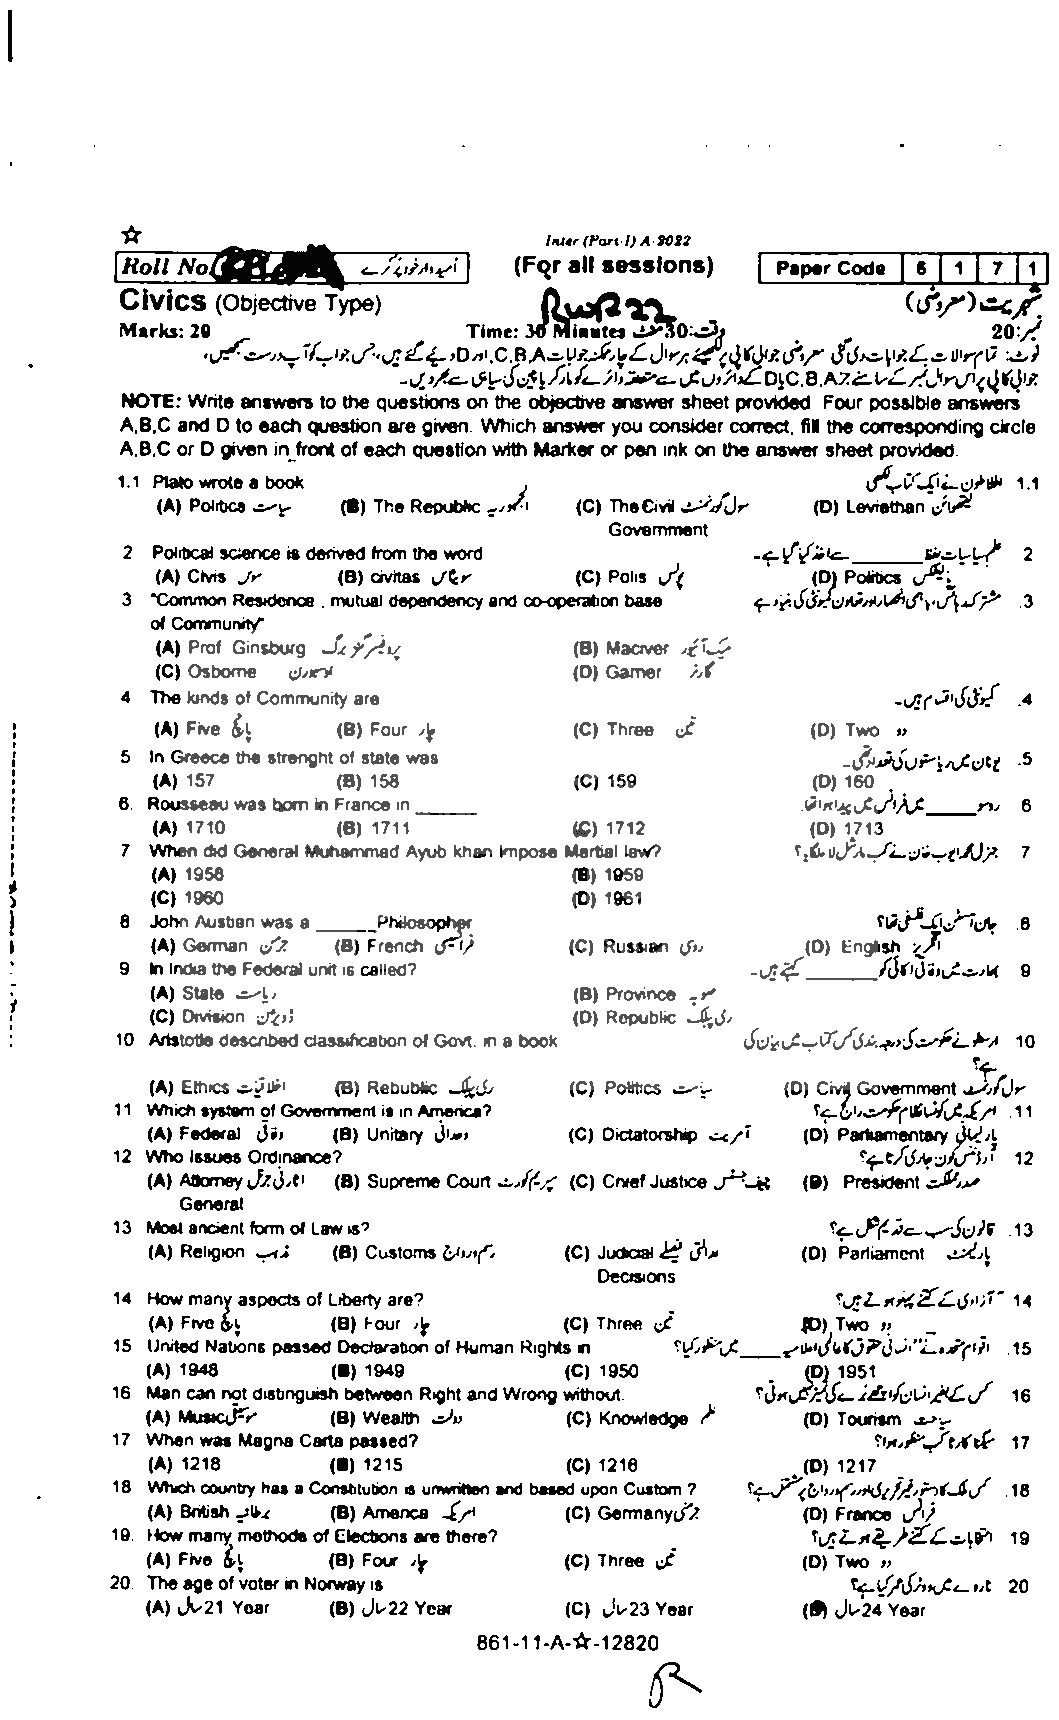 ☆ Inter (Part-I) A-2022
Roll No. امیدوار خود پُر کرے (For all sessions) Paper Code 6 1 7 1
Civics (Objective Type) RWP 22 شہریت (معروضی)
Marks: 20 Time: 30 Minutes وقت: 30 منٹ نمبر: 20
نوٹ: تمام سوالات کے جوابات دی گئی معروضی جوابی کاپی پر لکھیے ہر سوال کے چار ممکنہ جوابات A,B,C اور D دیے گئے ہیں، جس جواب کو آپ درست سمجھیں،
جوابی کاپی پر اس سوال نمبر کے سامنے A,B,C یا D کے دائروں میں سے متعلقہ دائرے کو مارکر یا پین کی سیاہی سے بھر دیں۔
NOTE: Write answers to the questions on the objective answer sheet provided Four possible answers
A,B,C and D to each question are given. Which answer you consider correct, fill the corresponding circle
A,B,C or D given in front of each question with Marker or pen ink on the answer sheet provided.
1.1 Plato wrote a book افلاطون نے ایک کتاب لکھی 1.1
(A) Politics سیاست (B) The Republic الجمہوریہ (C) The Civil سول گورنمنٹ (D) Leviathan لیتھوائن
Government
2 Political science is derived from the word علم سیاسیات لفظ ______ سے اخذ کیا گیا ہے۔ 2
(A) Civis سوس (B) civitas سویٹاس (C) Polis پولس (D) Politics پولیٹکس
3 "Common Residence, mutual dependency and co-operation base مشترکہ رہائش، باہمی انحصار اور تعاون کمیونٹی کی بنیاد ہے .3
of Community"
(A) Prof Ginsburg پروفیسر گنز برگ (B) Maciver میک آئیور
(C) Osborne اوسبورن (D) Garner گارنر
4 The kinds of Community are کمیونٹی کی اقسام ہیں۔ .4
(A) Five پانچ (B) Four چار (C) Three تین (D) Two دو
5 In Greece the strenght of state was یونان میں ریاستوں کی تعداد تھی۔ .5
(A) 157 (B) 158 (C) 159 (D) 160
6. Rousseau was born in France in ______ روسو ______ میں فرانس میں پیدا ہوا تھا۔ 6
(A) 1710 (B) 1711 (C) 1712 (D) 1713
7 When did General Muhammad Ayub khan impose Martial law? جنرل محمد ایوب خان نے کب مارشل لا لگایا؟ 7
(A) 1958 (B) 1959
(C) 1960 (D) 1961
8 John Austian was a ______ Philosopher جان آسٹن ایک فلسفی تھا؟ .8
(A) German جرمن (B) French فرانسیسی (C) Russian روسی (D) English انگریز
9 In India the Federal unit is called? بھارت میں وفاقی اکائی کو ______ کہتے ہیں۔ 9
(A) State ریاست (B) Province صوبہ
(C) Division ڈویژن (D) Republic ری پبلک
10 Aristotle described classification of Govt. in a book ارسطو نے حکومت کی درجہ بندی کس کتاب میں بیان کی 10
ہے؟
(A) Ethics اخلاقیات (B) Rebublic ری پبلک (C) Politics سیاست (D) Civil Government سول گورنمنٹ
11 Which system of Government is in America? امریکہ میں کونسا نظام حکومت رائج ہے؟ .11
(A) Federal وفاقی (B) Unitary وحدانی (C) Dictatorship آمریت (D) Parliamentary پارلیمانی
12 Who Issues Ordinance? آرڈیننس کون جاری کرتا ہے؟ 12
(A) Attorney اٹارنی جنرل (B) Supreme Court سپریم کورٹ (C) Chief Justice چیف جسٹس (D) President صدر مملکت
General
13 Most ancient form of Law is? قانون کی سب سے قدیم شکل ہے؟ .13
(A) Religion مذہب (B) Customs رسم و رواج (C) Judicial عدالتی فیصلے (D) Parliament پارلیمنٹ
Decisions
14 How many aspects of Liberty are? "آزادی کے کتنے پہلو ہوتے ہیں؟ 14
(A) Five پانچ (B) Four چار (C) Three تین (D) Two دو
15 United Nations passed Declaration of Human Rights in اقوام متحدہ نے "انسانی حقوق کا عالمی اعلامیہ" ____ میں منظور کیا؟ .15
(A) 1948 (B) 1949 (C) 1950 (D) 1951
16 Man can not distinguish between Right and Wrong without. کس کے بغیر انسان کو اچھے برے کی تمیز نہیں ہوتی؟ 16
(A) Music میوزک (B) Wealth دولت (C) Knowledge علم (D) Tourism سیاحت
17 When was Magna Carta passed? میگنا کارٹا کب منظور ہوا؟ 17
(A) 1218 (B) 1215 (C) 1216 (D) 1217
18 Which country has a Constitution is unwritten and based upon Custom ? کس ملک کا دستور غیر تحریری اور رسم و رواج پر مشتمل ہے؟ .18
(A) British برطانیہ (B) America امریکہ (C) Germany جرمنی (D) France فرانس
19. How many methods of Elections are there? انتخابات کے کتنے طریقے ہوتے ہیں؟ 19
(A) Five پانچ (B) Four چار (C) Three تین (D) Two دو
20. The age of voter in Norway is ناروے میں ووٹر کی عمر کیا ہے؟ 20
(A) سال 21 Year (B) سال 22 Year (C) سال 23 Year (D) سال 24 Year
861-11-A-☆-12820